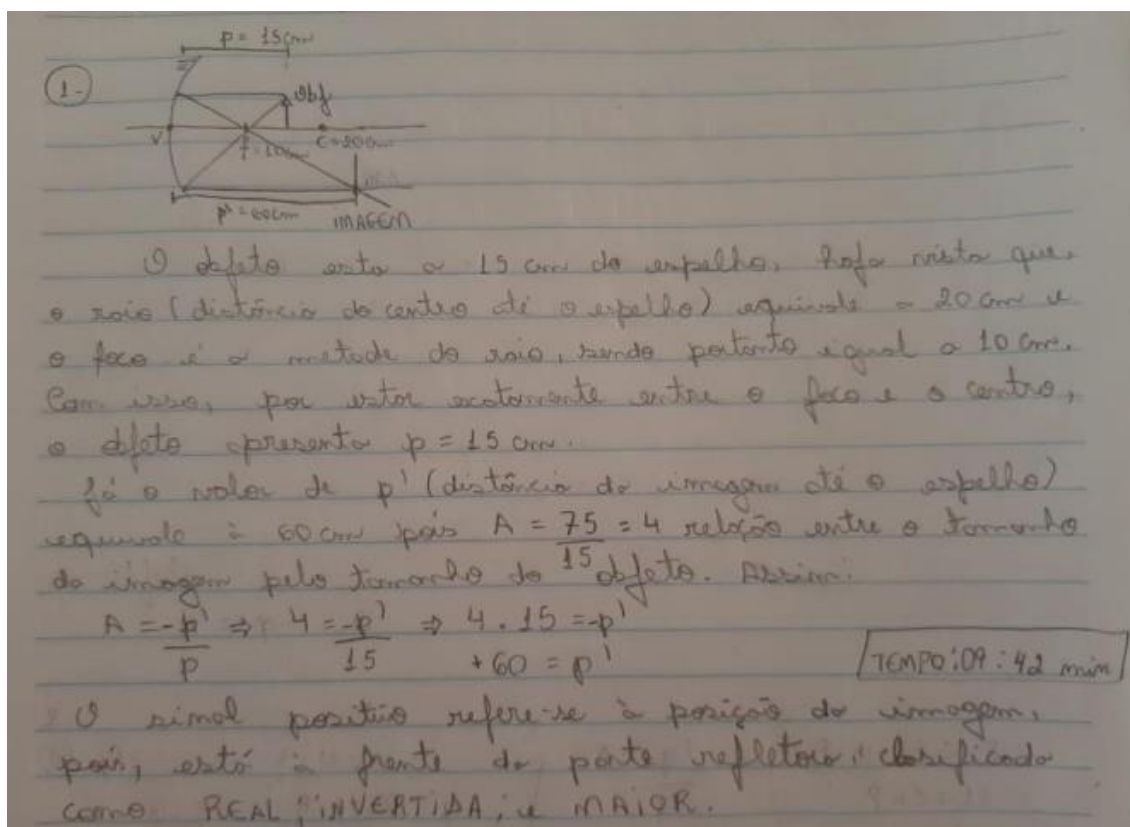 p = 15cm
1-
Obj
V
f = 10cm
C = 20cm
p' = 60cm
IMAGEM
O objeto esta a 15 cm do espelho, haja vista que,
o raio (distância do centro até o espelho) equivale a 20 cm e
o foco é a metade do raio, sendo portanto igual a 10 cm.
Com isso, por estar exatamente entre o foco e o centro,
o objeto apresenta p = 15 cm.
Já o valor de p' (distância da imagem até o espelho)
equivale à 60 cm pois A = 75/15 = 4 relação entre o tamanho
da imagem pelo tamanho do objeto. Assim:
A = -p'/p ⇒ 4 = -p'/15 ⇒ 4 . 15 = -p'
+ 60 = p'
TEMPO: 09 : 42 min
O sinal positivo refere-se à posição da imagem,
pois, está à frente da parte refletora, classificada
como REAL, INVERTIDA, e MAIOR.